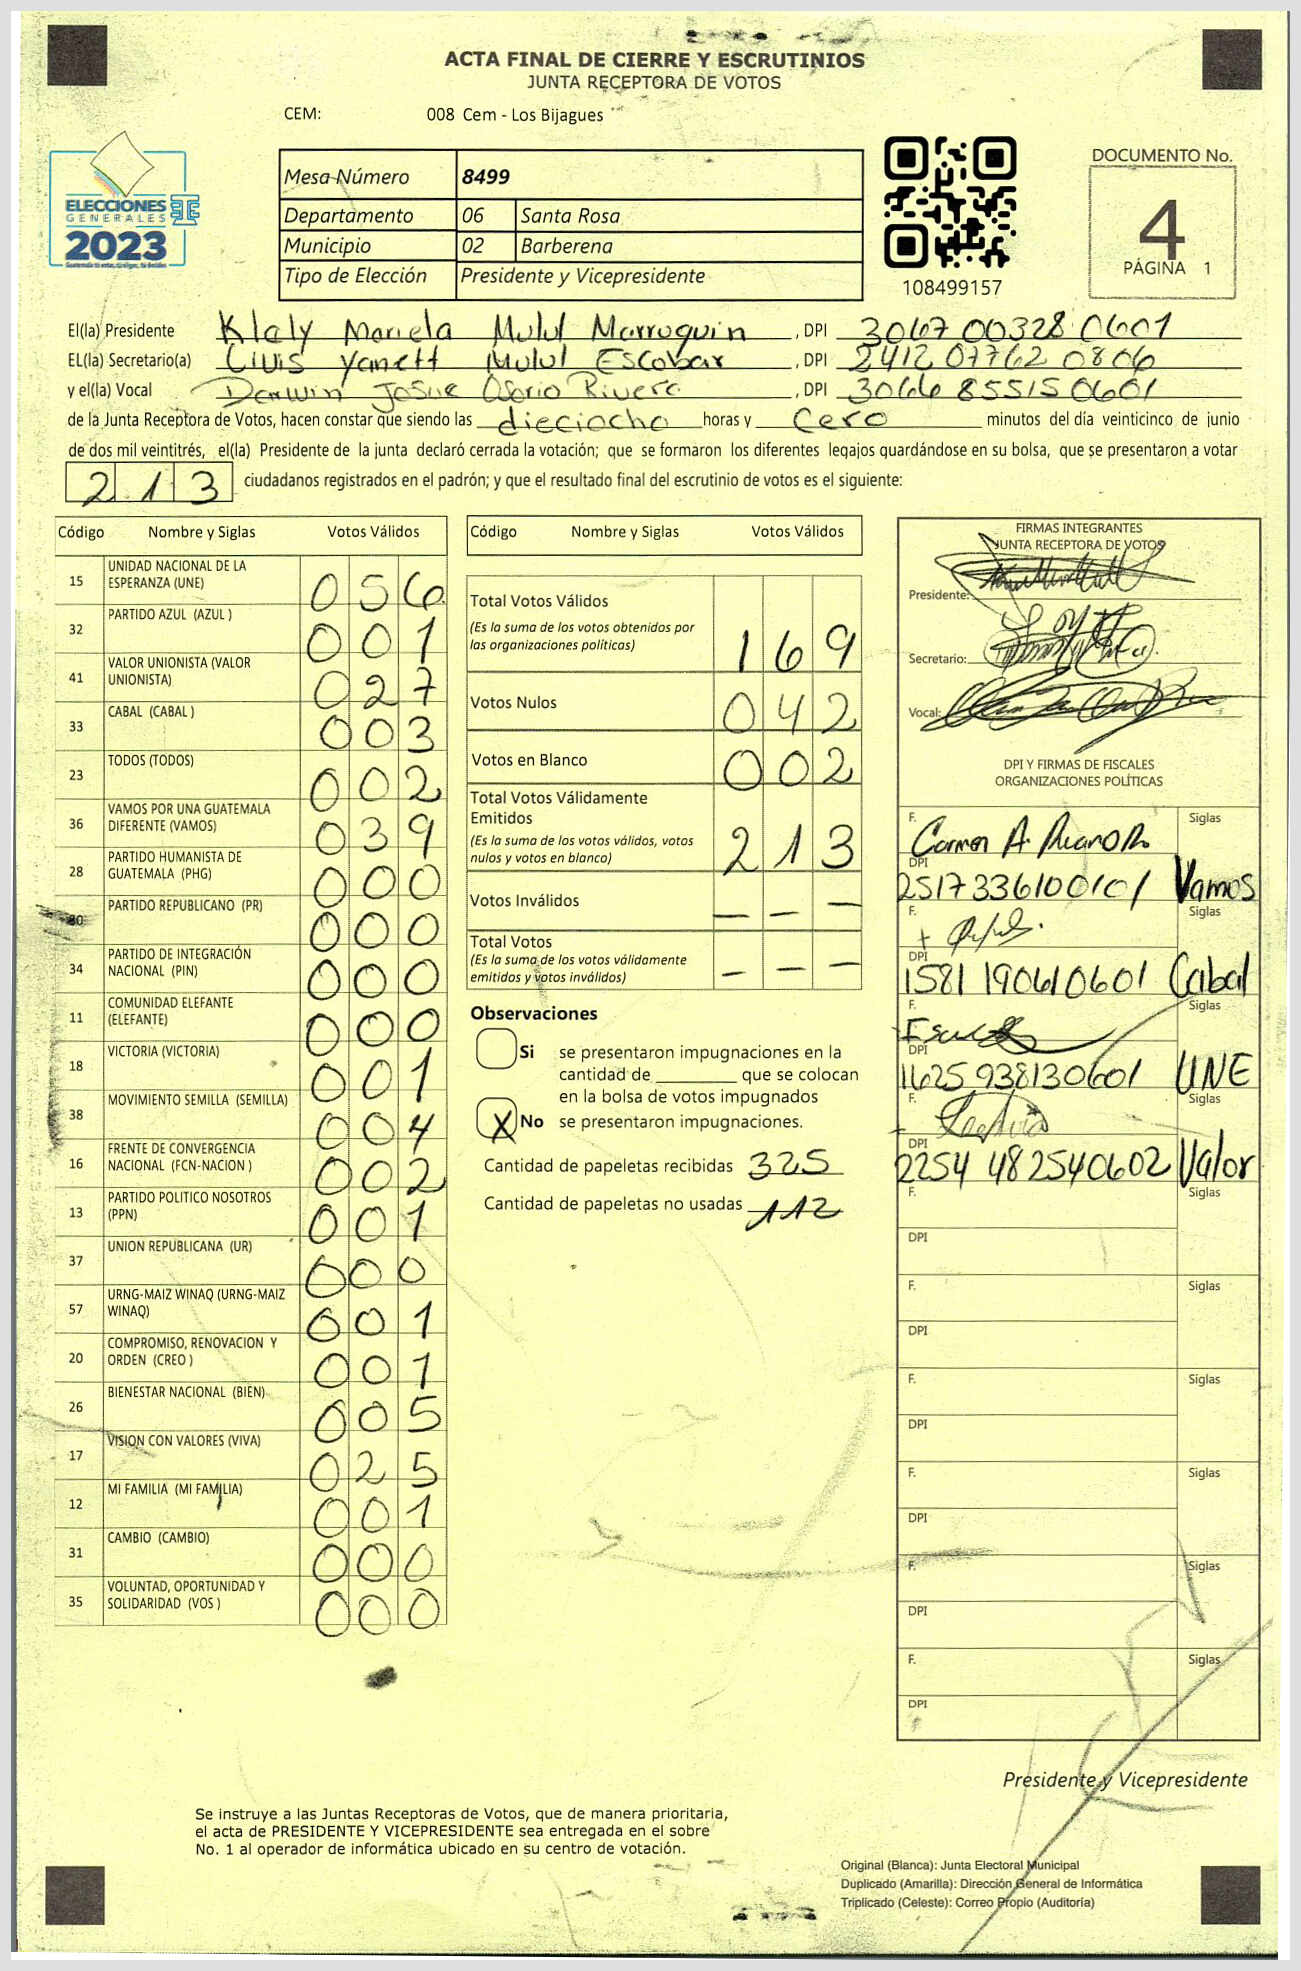 ACTA FINAL DE CIERRE Y ESCRUTINIOS
JUNTA RECEPTORA DE VOTOS
CEM: 008 Cem - Los Bijagues
ELECCIONES
GENERALES
2023
Mesa Número 8499
Departamento 06 Santa Rosa
Municipio 02 Barberena
Tipo de Elección Presidente y Vicepresidente
108499157
DOCUMENTO No.
4
PÁGINA 1
El(la) Presidente Klely Mariela Mulul Marroquin , DPI 3067 00328 0601
EL(la) Secretario(a) Yanett Mulul Escobar , DPI 2412 07762 0806
y el(la) Vocal Darwin Josue Osorio Rivera , DPI 3066 85515 0601
de la Junta Receptora de Votos, hacen constar que siendo las dieciocho horas y Cero minutos del día veinticinco de junio
de dos mil veintitrés, el(la) Presidente de la junta declaró cerrada la votación; que se formaron los diferentes legajos guardándose en su bolsa, que se presentaron a votar
213 ciudadanos registrados en el padrón; y que el resultado final del escrutinio de votos es el siguiente:
Código Nombre y Siglas Votos Válidos
15 UNIDAD NACIONAL DE LA ESPERANZA (UNE) 056
32 PARTIDO AZUL (AZUL ) 001
41 VALOR UNIONISTA (VALOR UNIONISTA) 027
33 CABAL (CABAL ) 003
23 TODOS (TODOS) 002
36 VAMOS POR UNA GUATEMALA DIFERENTE (VAMOS) 039
28 PARTIDO HUMANISTA DE GUATEMALA (PHG) 000
30 PARTIDO REPUBLICANO (PR) 000
34 PARTIDO DE INTEGRACIÓN NACIONAL (PIN) 000
11 COMUNIDAD ELEFANTE (ELEFANTE) 000
18 VICTORIA (VICTORIA) 001
38 MOVIMIENTO SEMILLA (SEMILLA) 004
16 FRENTE DE CONVERGENCIA NACIONAL (FCN-NACION ) 002
13 PARTIDO POLITICO NOSOTROS (PPN) 001
37 UNION REPUBLICANA (UR) 000
57 URNG-MAIZ WINAQ (URNG-MAIZ WINAQ) 001
20 COMPROMISO, RENOVACION Y ORDEN (CREO ) 001
26 BIENESTAR NACIONAL (BIEN) 005
17 VISION CON VALORES (VIVA) 025
12 MI FAMILIA (MI FAMILIA) 001
31 CAMBIO (CAMBIO) 000
35 VOLUNTAD, OPORTUNIDAD Y SOLIDARIDAD (VOS ) 000
Código Nombre y Siglas Votos Válidos
Total Votos Válidos
(Es la suma de los votos obtenidos por
las organizaciones políticas) 169
Votos Nulos 042
Votos en Blanco 002
Total Votos Válidamente
Emitidos
(Es la suma de los votos válidos, votos
nulos y votos en blanco) 213
Votos Inválidos — — —
Total Votos
(Es la suma de los votos válidamente
emitidos y votos inválidos) — — —
Observaciones
Si se presentaron impugnaciones en la
cantidad de ________ que se colocan
en la bolsa de votos impugnados
X No se presentaron impugnaciones.
Cantidad de papeletas recibidas 325
Cantidad de papeletas no usadas 112
FIRMAS INTEGRANTES
JUNTA RECEPTORA DE VOTOS
Presidente:
Secretario:
Vocal:
DPI Y FIRMAS DE FISCALES
ORGANIZACIONES POLÍTICAS
F. Carmen A. Siglas
DPI 2517336100101 Vamos
F. Siglas
DPI 1581 190610601 Cabal
F. Siglas
DPI 1625 938130601 UNE
F. Siglas
DPI 2254 482540602 Valor
F. Siglas
DPI
F. Siglas
DPI
F. Siglas
DPI
F. Siglas
DPI
F. Siglas
DPI
F. Siglas
DPI
Presidente y Vicepresidente
Se instruye a las Juntas Receptoras de Votos, que de manera prioritaria,
el acta de PRESIDENTE Y VICEPRESIDENTE sea entregada en el sobre
No. 1 al operador de informática ubicado en su centro de votación.
Original (Blanca): Junta Electoral Municipal
Duplicado (Amarilla): Dirección General de Informática
Triplicado (Celeste): Correo Propio (Auditoría)